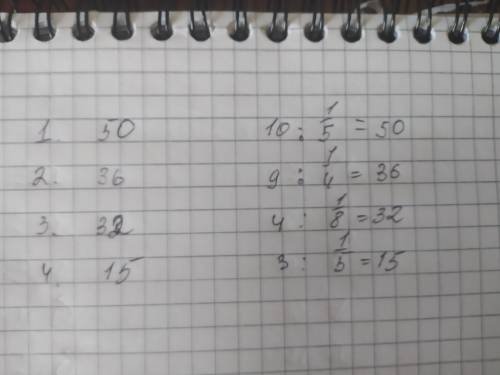 1. 50 10 : 1/5 = 50
2. 36 9 : 1/4 = 36
3. 32 4 : 1/8 = 32
4. 15 3 : 1/5 = 15